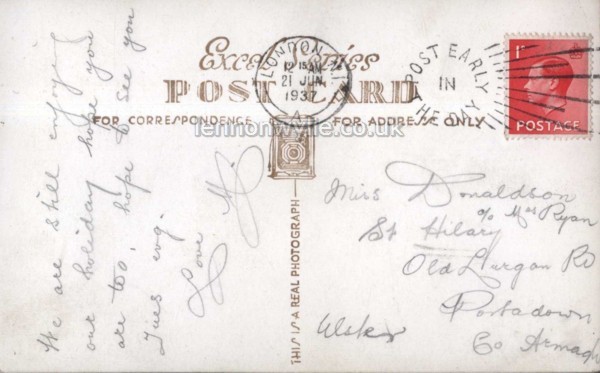 Excel Series
POST CARD
FOR CORRESPONDENCE
FOR ADDRESS ONLY
lennonwylie.co.uk
LONDON
12 15 AM
21 JUN
1937
A
POST EARLY
IN
THE DAY
1D
POSTAGE
We are still enjoying
our holiday hope you
are too, hope to see you
Tues evg.
Love
THIS IS A REAL PHOTOGRAPH
Miss Donaldson
c/o Mrs Ryan
St Hilary
Old Lurgan Rd
Portadown
Co Armagh